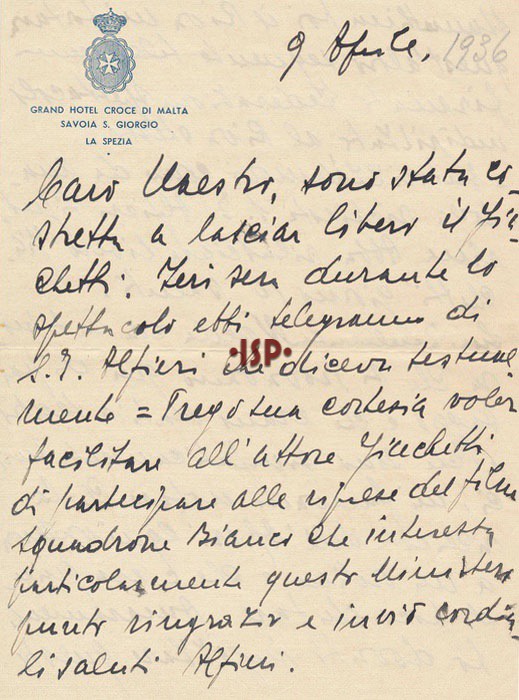 9 Aprile, 1936
GRAND HOTEL CROCE DI MALTA
SAVOIA S. GIORGIO
LA SPEZIA
Caro Maestro, sono stata co-
stretta a lasciar libero il Gia-
chetti. Ieri sera durante lo
spettacolo ebbi telegramma di
S.E. Alfieri che diceva testual-
mente = Prego tua cortesia voler
facilitare all'attore Giachetti
di partecipare alle riprese del film
Squadrone Bianco che interessa
particolarmente questo Ministero
punto ringrazio e invio cordia-
li saluti Alfieri.
ISP